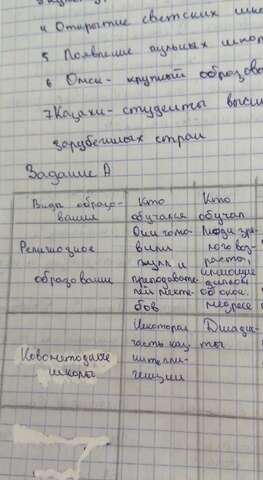 4 Открытие светских шко
5 Появление русских школ
6 Омск - крупный образова
7 Казахи - студенты высш
зарубежных стран
Задание А
Виды образо-
вания
Кто
обучался
Кто
обучал
Религиозное
образования
Они гото-
вили
мулл и
преподавате-
лей мекте-
бов
Люди зре-
лого воз-
раста,
имеющие
диплом
об окон.
медресе
Новометодные
школы
Некоторая
часть каз
интелли-
генции
Джади-
ты